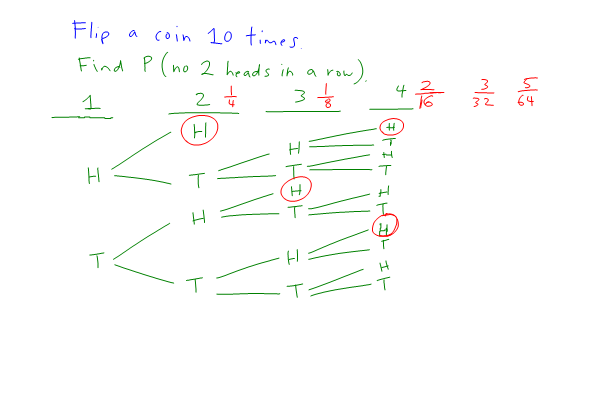 Flip a coin 10 times.
Find P(no 2 heads in a row).
1 2 1/4 3 1/8 4 2/16 3/32 5/64
H
H
H
T
H
T
H
T
H
T
H
H
T
H
T
T
H
T
H
H
T
T
H
T
T
H
T